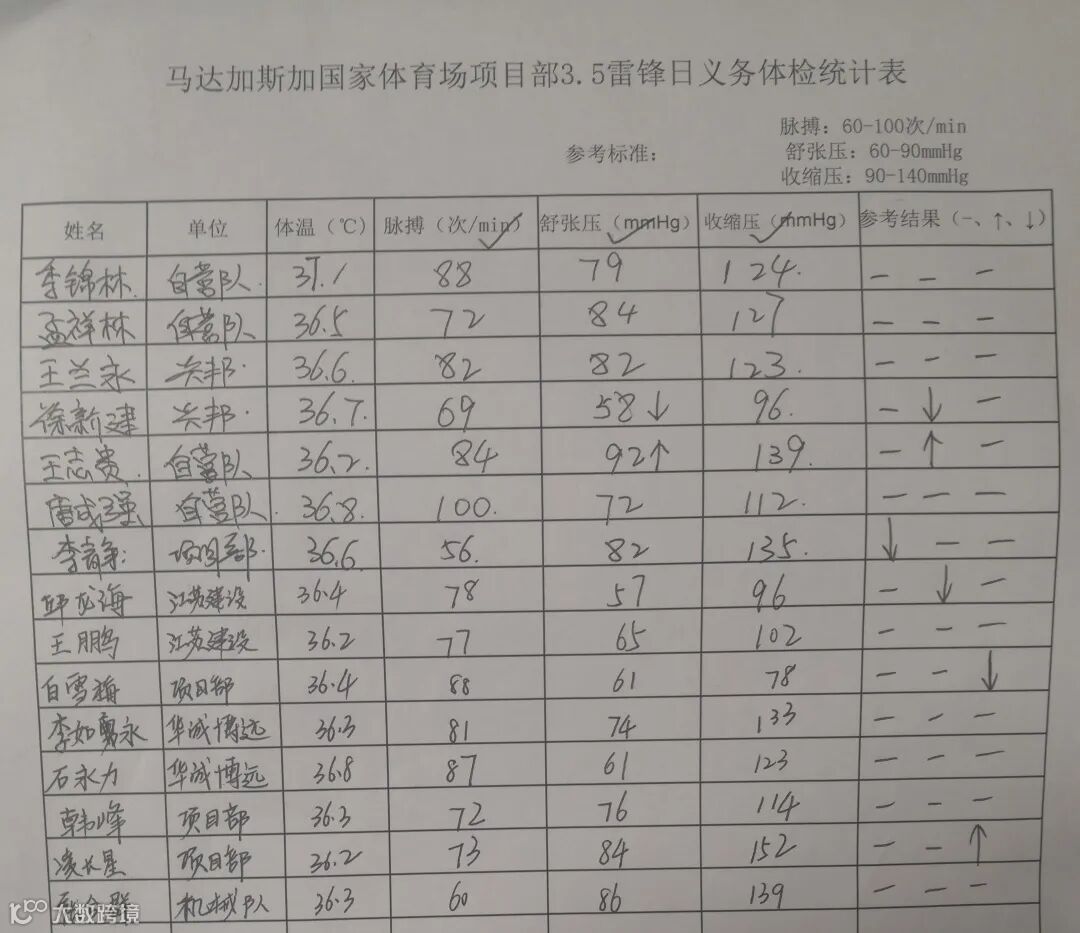 马达加斯加国家体育场项目部3.5雷锋日义务体检统计表
脉搏：60-100次/min
参考标准：
舒张压：60-90mmHg
收缩压：90-140mmHg
姓名 单位 体温（℃） 脉搏（次/min） 舒张压（mmHg） 收缩压（mmHg） 参考结果（-、↑、↓）
李锦林 自营队 37.1 88 79 124 - - -
孟祥林 自营队 36.5 72 84 127 - - -
王兰永 兴邦 36.6 82 82 123 - - -
徐新建 兴邦 36.7 69 58↓ 96 - ↓ -
王志贵 自营队 36.2 84 92↑ 139 - ↑ -
唐成强 自营队 36.8 100 72 112 - - -
李静 项目部 36.6 56 82 135 ↓ - -
邱龙海 江苏建设 36.4 78 57 96 - ↓ -
王鹏 江苏建设 36.2 77 65 102 - - -
白雪梅 项目部 36.4 88 61 78 - - ↓
李如勇永 华成博远 36.3 81 74 133 - - -
石永力 华成博远 36.8 87 61 123 - - -
韩峰 项目部 36.3 72 76 114 - - -
凌长星 项目部 36.2 73 84 152 - - ↑
机械队 36.3 60 86 139 - - -
大数跨境